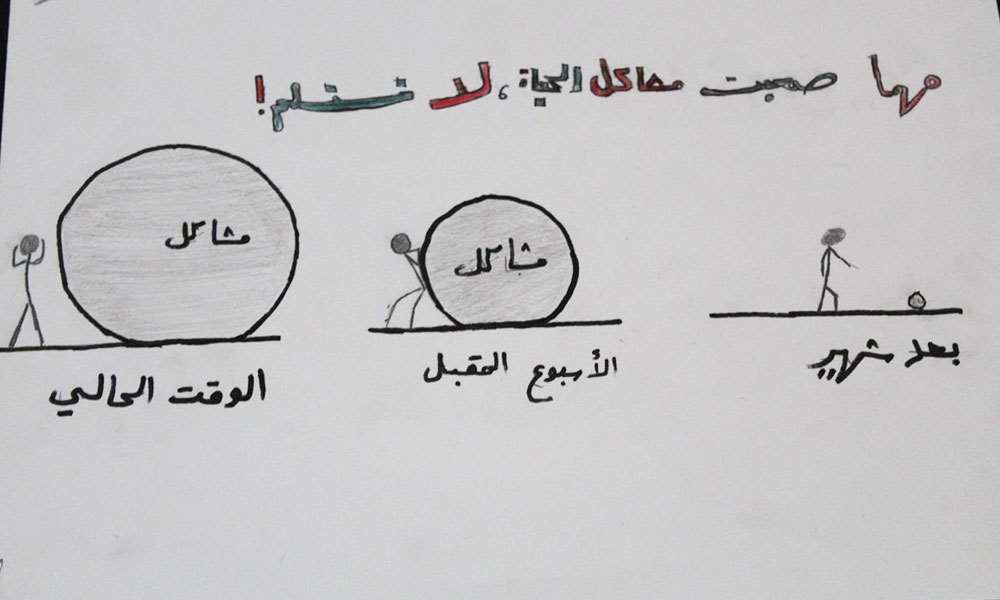 مهما صعبت مشاكل الحياة، لا تستسلم!
مشاكل
مشاكل
بعد شهر
الأسبوع المقبل
الوقت الحالي